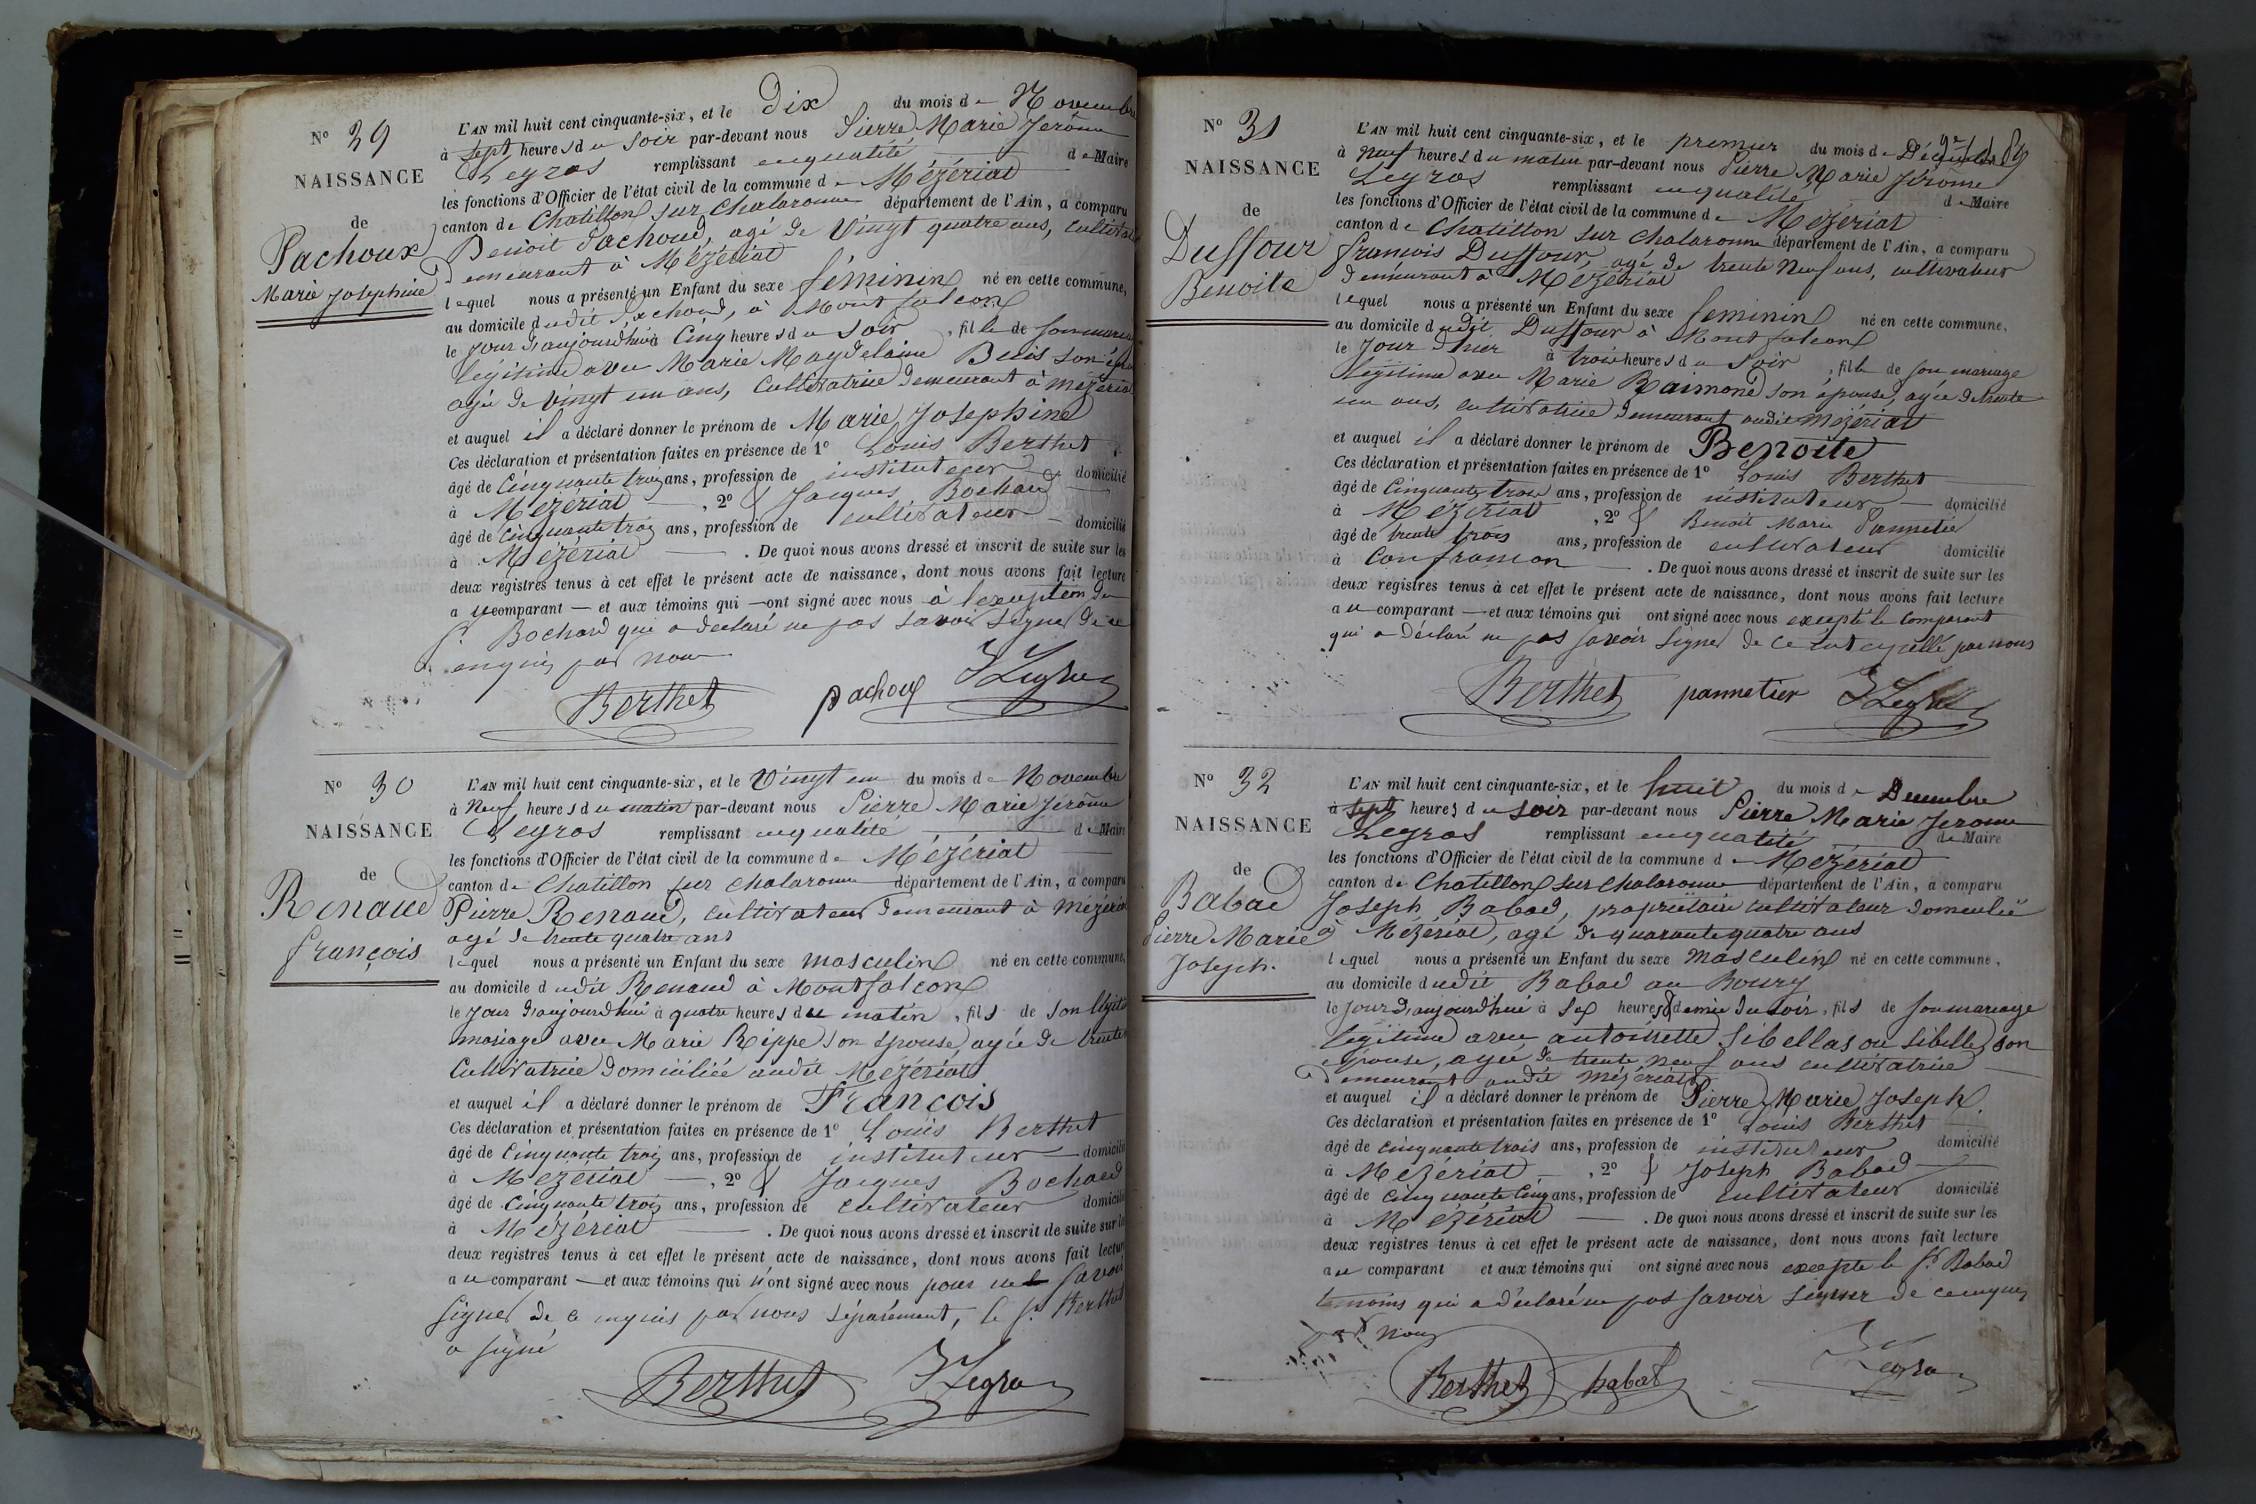 N° 29
NAISSANCE
de
Pachoux
Marie Josephine
L'AN mil huit cent cinquante-six, et le Dix du mois de Novembre
à sept heures du soir par-devant nous Pierre Marie Jerôme
Legros remplissant en qualité de Maire
les fonctions d'Officier de l'état civil de la commune de Mézériat
canton de Chatillon sur Chalaronne département de l'Ain, a comparu
Benoit Pachoud, agé de Vingt quatre ans, cultivateur
demeurant à Mézériat
lequel nous a présenté un Enfant du sexe féminin né en cette commune,
au domicile dudit Pachoud, à Montfalcon
le jour d'aujourdhui à Cinq heures du soir, fille de son mariage
légitime avec Marie Magdelaine Buis son épouse
agée de vingt un ans, Cultivatrice demeurant à Mézériat
et auquel il a déclaré donner le prénom de Marie Josephine
Ces déclaration et présentation faites en présence de 1° Louis Berthet
âgé de Cinquante trois ans, profession de instituteur domicilié
à Mézériat, 2° & Jacques Bochard
âgé de cinquante trois ans, profession de cultivateur domicilié
à Mézériat. De quoi nous avons dressé et inscrit de suite sur les
deux registres tenus à cet effet le présent acte de naissance, dont nous avons fait lecture
au comparant et aux témoins qui ont signé avec nous à l'exception du
Sr Bochard qui a déclaré ne pas savoir signer de ce
enquis par nous
Berthet pachoux J Legros
N° 30
NAISSANCE
de
Renaud
françois
L'AN mil huit cent cinquante-six, et le Vingt un du mois de Novembre
à Neuf heures du matin par-devant nous Pierre Marie Jérôme
Legros remplissant en qualité de Maire
les fonctions d'Officier de l'état civil de la commune de Mézériat
canton de Chatillon sur Chalaronne département de l'Ain, a comparu
Pierre Renaud, cultivateur demeurant à Mézériat
agé de trente quatre ans
lequel nous a présenté un Enfant du sexe masculin né en cette commune,
au domicile dudit Renaud à Montfalcon
le jour d'aujourdhui à quatre heures du matin, fils de son légitime
mariage avec Marie Rippe son épouse agée de trente
Cultivatrice domiciliée audit Mézériat
et auquel il a déclaré donner le prénom de François
Ces déclaration et présentation faites en présence de 1° Louis Berthet
âgé de Cinquante trois ans, profession de instituteur domicilié
à Mézériat, 2° & Jacques Bochard
âgé de cinquante trois ans, profession de cultivateur domicilié
à Mézériat. De quoi nous avons dressé et inscrit de suite sur les
deux registres tenus à cet effet le présent acte de naissance, dont nous avons fait lecture
au comparant et aux témoins qui n'ont signé avec nous pour ne savoir
signer de ce enquis par nous séparément, le Sr Berthet
a signé
Berthet J Legros
N° 31
NAISSANCE
de
Duffour
Benoite
L'AN mil huit cent cinquante-six, et le premier du mois de Décembre
à Neuf heures du matin par-devant nous Pierre Marie Jérôme
Legros remplissant en qualité de Maire
les fonctions d'Officier de l'état civil de la commune de Mézériat
canton de Chatillon sur Chalaronne département de l'Ain, a comparu
francois Duffour, agé de trente Neuf ans, cultivateur
demeurant à Mézériat
lequel nous a présenté un Enfant du sexe feminin né en cette commune,
au domicile dudit Duffour à Montfalcon
le jour d'hier à trois heures du soir, fille de son mariage
légitime avec Marie Raimond son épouse, agée de trente
un ans, cultivatrice demeurant audit Mézériat
et auquel il a déclaré donner le prénom de Benoite
Ces déclaration et présentation faites en présence de 1° Louis Berthet
âgé de Cinquante trois ans, profession de instituteur domicilié
à Mézériat, 2° & Benoit Marie Pannetier
âgé de trente trois ans, profession de cultivateur domicilié
à Confrançon. De quoi nous avons dressé et inscrit de suite sur les
deux registres tenus à cet effet le présent acte de naissance, dont nous avons fait lecture
au comparant et aux témoins qui ont signé avec nous excepté le comparant
qui a déclaré ne pas savoir signer de ce par nous
Berthet pannetier J Legros
N° 32
NAISSANCE
de
Babad
Pierre Marie
Joseph.
L'AN mil huit cent cinquante-six, et le huit du mois de Decembre
à sept heures du soir par-devant nous Pierre Marie Jerome
Legros remplissant en qualité de Maire
les fonctions d'Officier de l'état civil de la commune de Mézériat
canton de Chatillon sur Chalaronne département de l'Ain, a comparu
Joseph Babad, propriétaire cultivateur domicilié
à Mézériat, agé de quarante quatre ans
lequel nous a présenté un Enfant du sexe Masculin né en cette commune,
au domicile dudit Babad au Boury
le jour d'aujourdhui à six heures & demie du soir, fils de son mariage
légitime avec antoinette Sibellas ou Sibelle, son
épouse, agée de trente neuf ans cultivatrice
demeurant audit Mézériat
et auquel il a déclaré donner le prénom de Pierre Marie Joseph.
Ces déclaration et présentation faites en présence de 1° Louis Berthet
âgé de cinquante trois ans, profession de instituteur domicilié
à Mézériat, 2° & Joseph Babad
âgé de cinquante cinq ans, profession de cultivateur domicilié
à Mézériat. De quoi nous avons dressé et inscrit de suite sur les
deux registres tenus à cet effet le présent acte de naissance, dont nous avons fait lecture
au comparant et aux témoins qui ont signé avec nous excepté le Sr Babad
témoins qui a déclaré ne pas savoir signer de ce enquis
par nous
Berthet babad J Legros